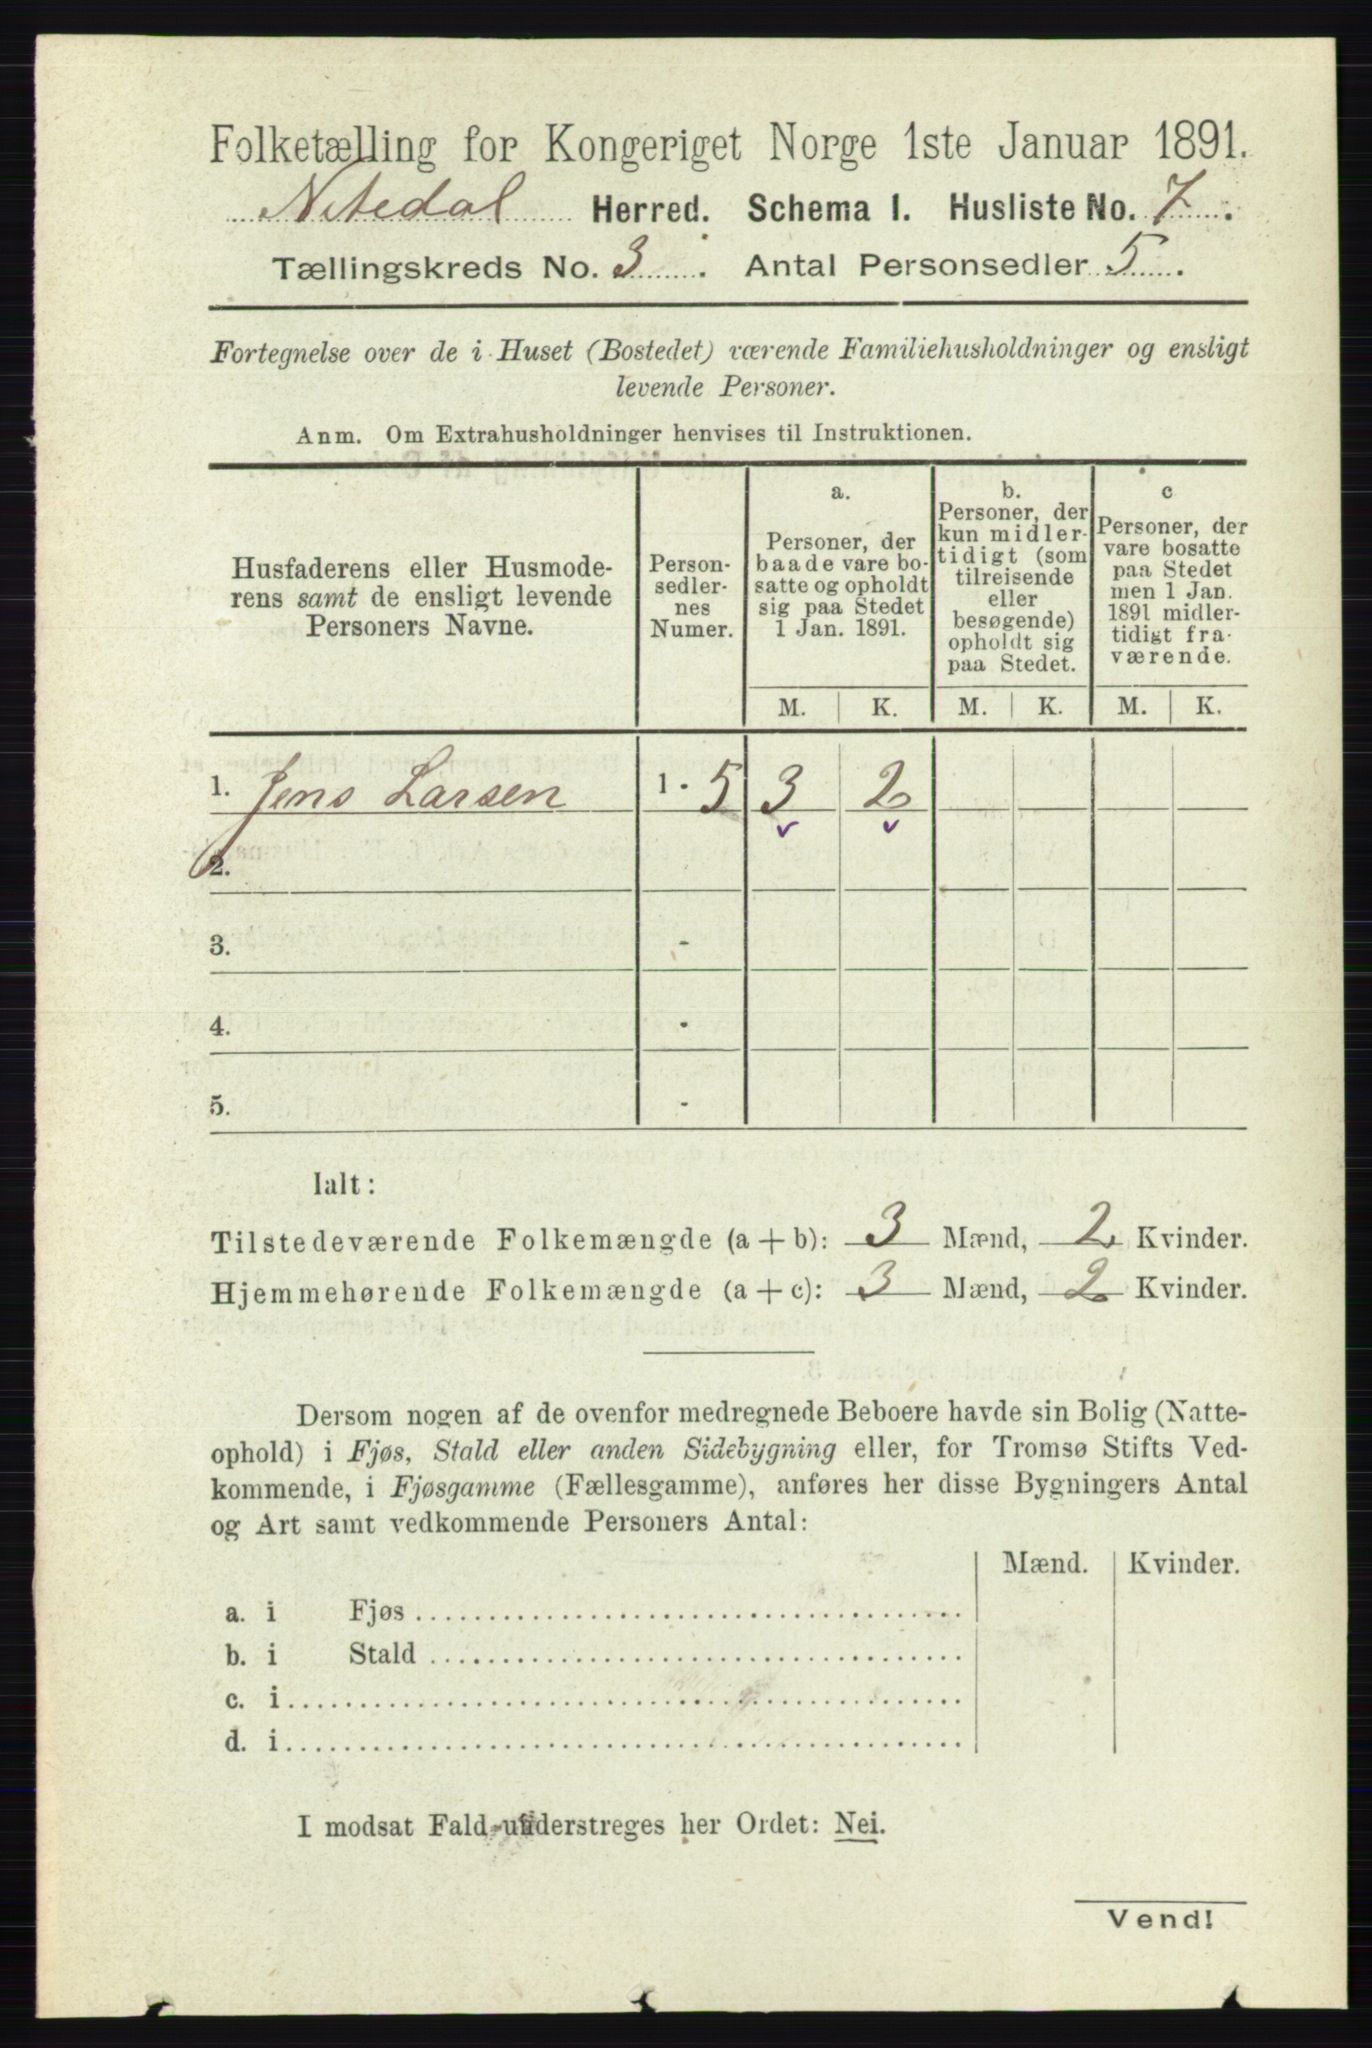 Folketælling for Kongeriget Norge 1ste Januar 1891.
Nitedal Herred. Schema I. Husliste No. 7.
Tællingskreds No. 3. Antal Personsedler 5.
Fortegnelse over de i Huset (Bostedet) værende Familiehusholdninger og ensligt
levende Personer.
Anm. Om Extrahusholdninger henvises til Instruktionen.
Husfaderens eller Husmode-
rens samt de ensligt levende
Personers Navne.
Person-
sedler-
nes
Numer.
a.
Personer, der
baade vare bo-
satte og opholdt
sig paa Stedet
1 Jan. 1891.
b.
Personer, der
kun midler-
tidigt (som
tilreisende
eller
besøgende)
opholdt sig
paa Stedet.
c
Personer, der
vare bosatte
paa Stedet
men 1 Jan.
1891 midler-
tidigt fra-
værende.
M. K. M. K. M. K.
1. Jens Larsen 1 - 5 3 2
2.
3. -
4. -
5. -
Ialt:
Tilstedeværende Folkemængde (a + b): 3 Mænd, 2 Kvinder.
Hjemmehørende Folkemængde (a + c): 3 Mænd, 2 Kvinder.
Dersom nogen af de ovenfor medregnede Beboere havde sin Bolig (Natte-
ophold) i Fjøs, Stald eller anden Sidebygning eller, for Tromsø Stifts Ved-
kommende, i Fjøsgamme (Fællesgamme), anføres her disse Bygningers Antal
og Art samt vedkommende Personers Antal:
Mænd. Kvinder.
a. i Fjøs
b. i Stald
c. i
d. i
I modsat Fald understreges her Ordet: Nei.
Vend!